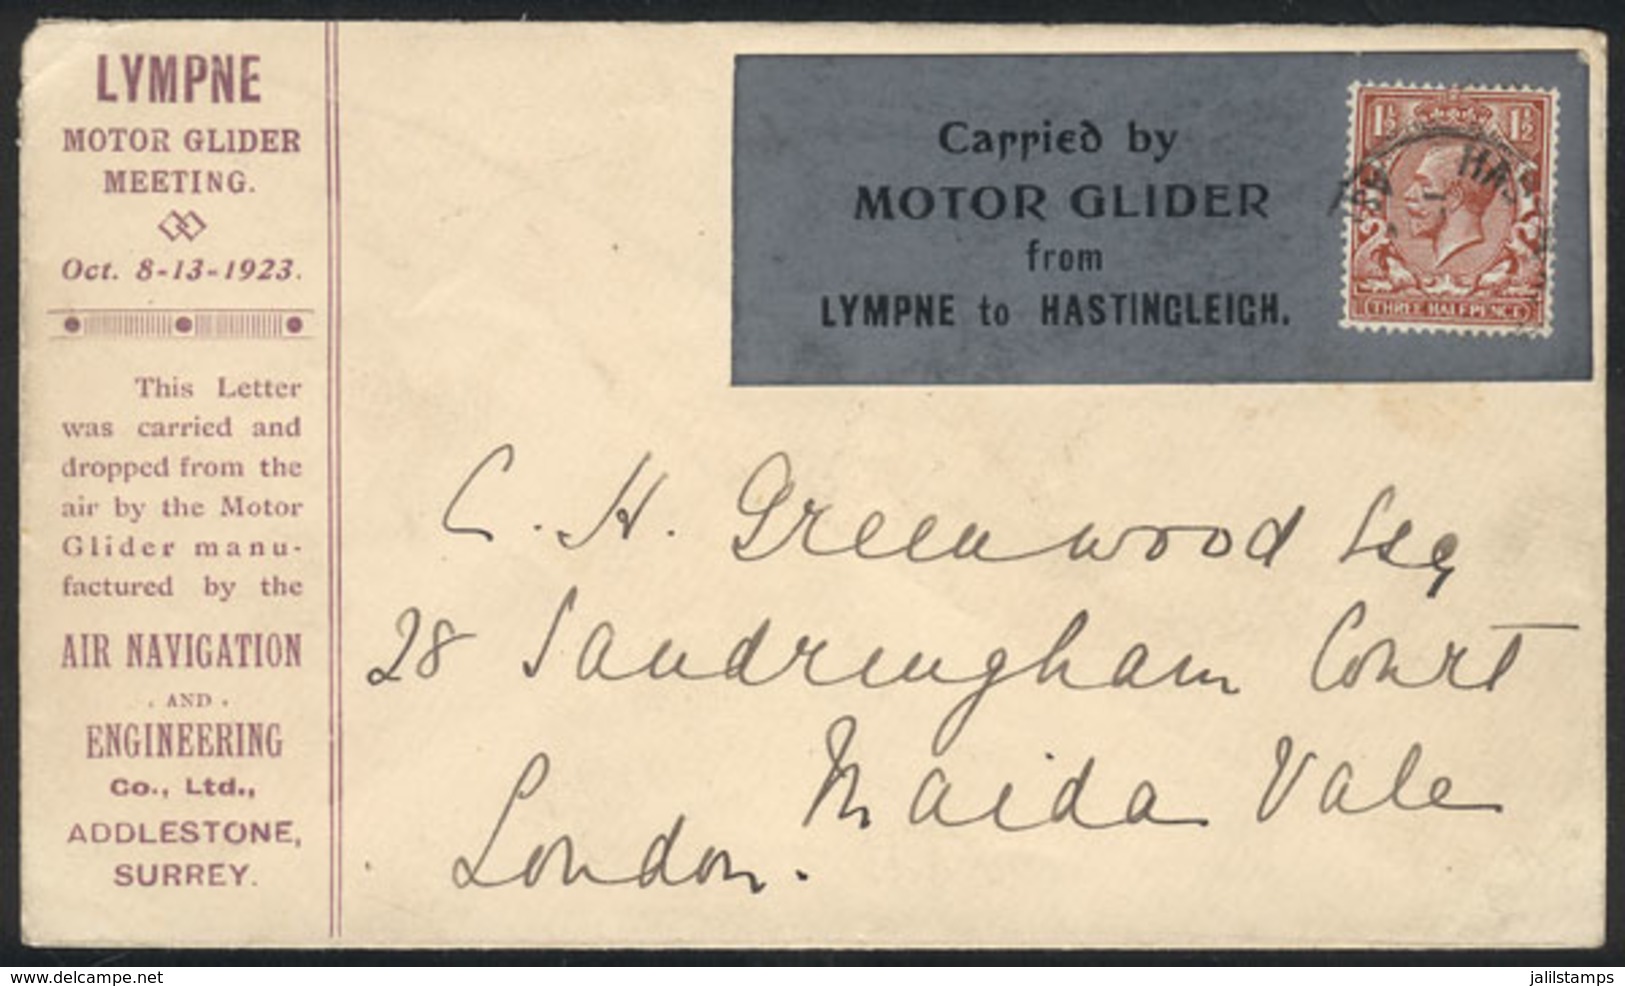 LYMPNE
MOTOR GLIDER
MEETING.
Oct. 8-13-1923.
This Letter
was carried and
dropped from the
air by the Motor
Glider manu-
factured by the
AIR NAVIGATION
. AND .
ENGINEERING
Co., Ltd.,
ADDLESTONE,
SURREY.
Carried by
MOTOR GLIDER
from
LYMPNE to HASTINGLEIGH.
1½ 1½
THREE HALFPENCE
HAS
C. H. Greenwood Esq
28 Sandringham Court
Maida Vale
London.
www.delcampe.net
jalilstamps